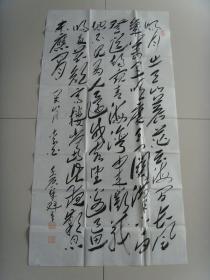 明月出天山苍茫云海间长风
几万里吹度玉门关汉下白
登道胡窥青海湾由来征战
地不见有人还戍客望边邑
思归多苦颜高楼当此夜叹息
未应闲 关山月 李白